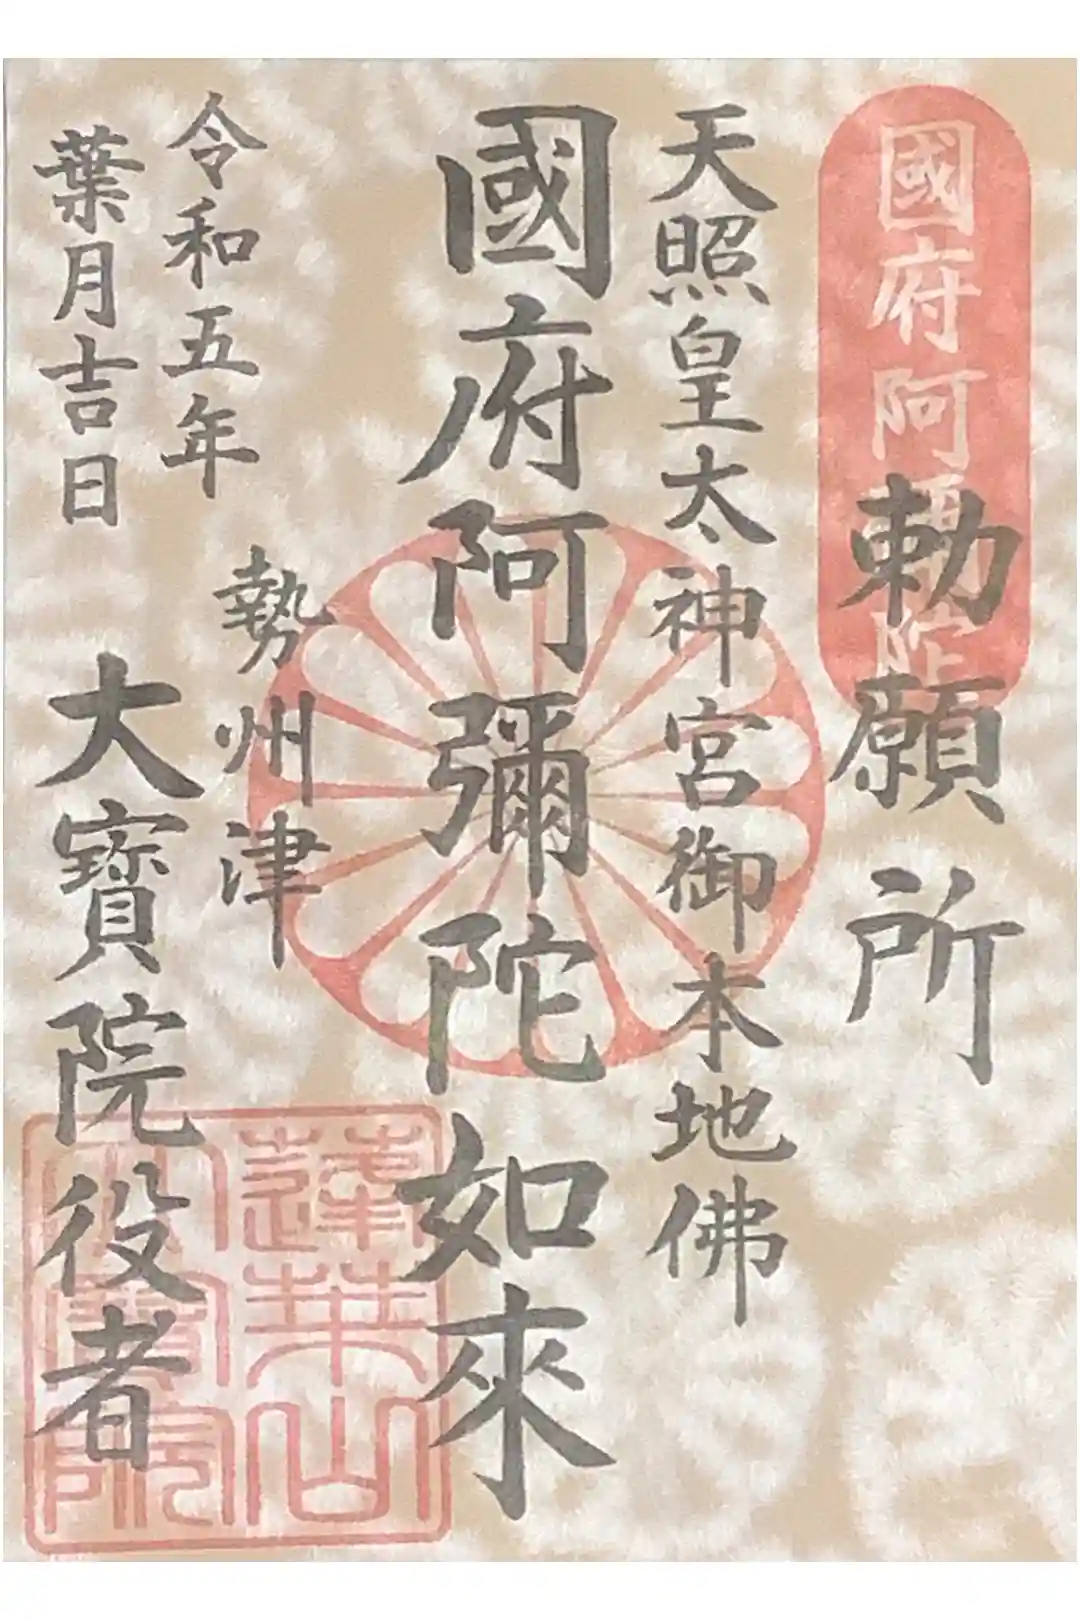 國府阿彌陀
勅願所
天照皇太神宮御本地佛
國府阿彌陀如來
勢州津
令和五年
葉月吉日
大寶院役者
蓮華山
大寶院